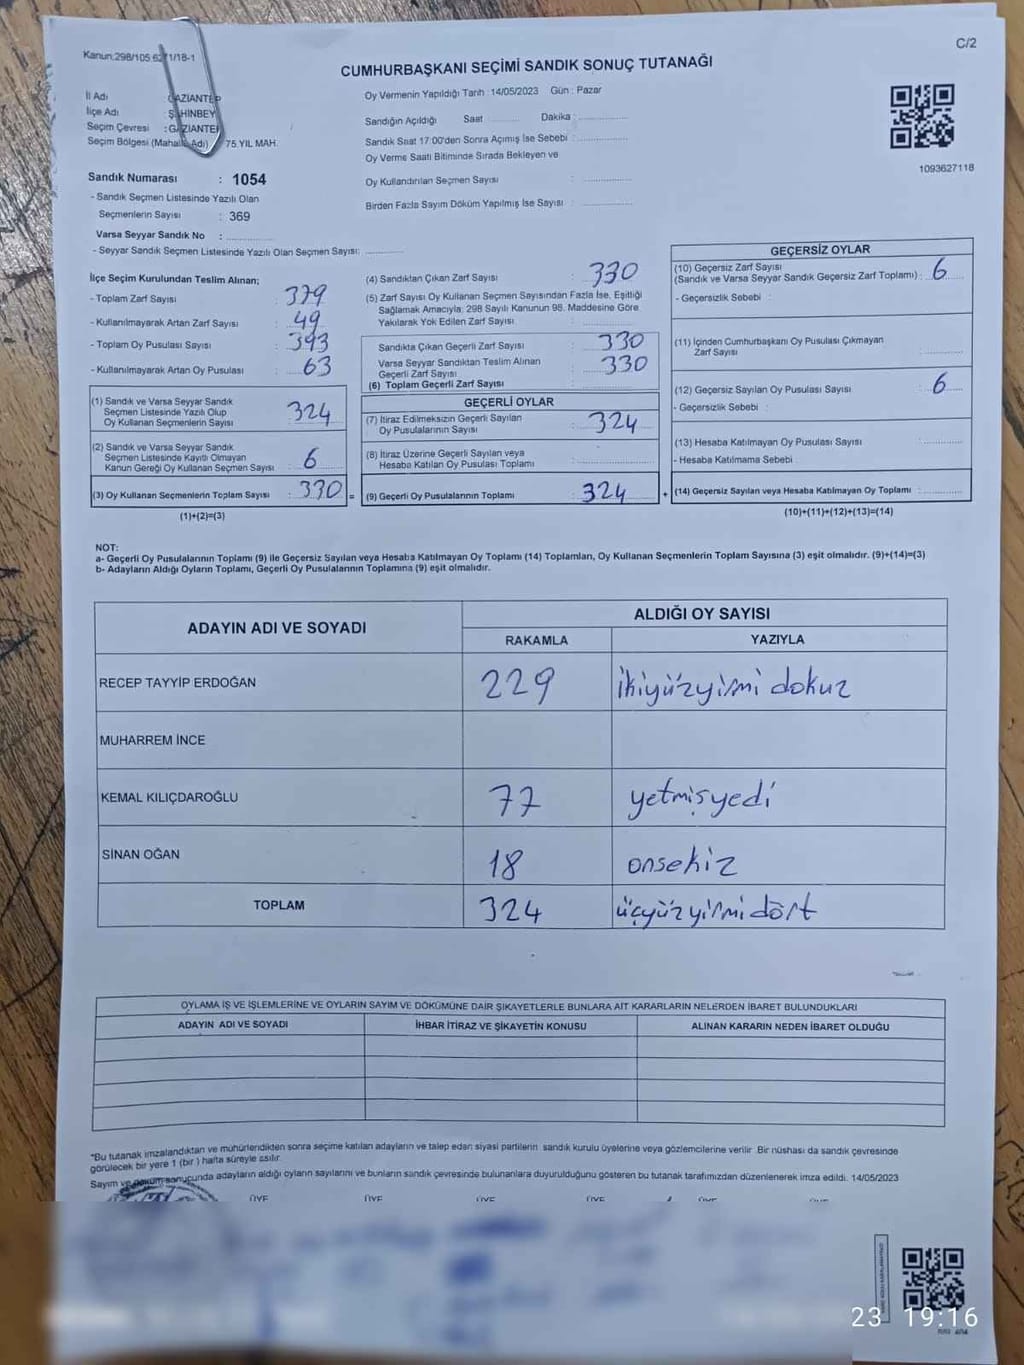 Kanun:298/105 6271/18-1
C/2
CUMHURBAŞKANI SEÇİMİ SANDIK SONUÇ TUTANAĞI
İl Adı : GAZİANTEP
İlçe Adı : ŞAHİNBEY
Seçim Çevresi : GAZİANTEP
Seçim Bölgesi (Mahalle Adı) : 75.YIL MAH.
Oy Vermenin Yapıldığı Tarih : 14/05/2023 Gün : Pazar
Sandığın Açıldığı Saat Dakika :
Sandık Saat 17:00'den Sonra Açımış İse Sebebi :
Oy Verme Saati Bitiminde Sırada Bekleyen ve
Oy Kullandırılan Seçmen Sayısı :
Birden Fazla Sayım Döküm Yapılmış İse Sayısı :
1093627118
Sandık Numarası : 1054
- Sandık Seçmen Listesinde Yazılı Olan
Seçmenlerin Sayısı : 369
Varsa Seyyar Sandık No :
- Seyyar Sandık Seçmen Listesinde Yazılı Olan Seçmen Sayısı:
İlçe Seçim Kurulundan Teslim Alınan;
- Toplam Zarf Sayısı : 379
- Kullanılmayarak Artan Zarf Sayısı : 49
- Toplam Oy Pusulası Sayısı : 393
- Kullanılmayarak Artan Oy Pusulası : 63
(1) Sandık ve Varsa Seyyar Sandık
Seçmen Listesinde Yazılı Olup
Oy Kullanan Seçmenlerin Sayısı : 324
(2) Sandık ve Varsa Seyyar Sandık
Seçmen Listesinde Kayıtlı Olmayan
Kanun Gereği Oy Kullanan Seçmen Sayısı : 6
(3) Oy Kullanan Seçmenlerin Toplam Sayısı : 330 =
(1)+(2)=(3)
(4) Sandıktan Çıkan Zarf Sayısı : 330
(5) Zarf Sayısı Oy Kullanan Seçmen Sayısından Fazla İse, Eşitliği
Sağlamak Amacıyla; 298 Sayılı Kanunun 98. Maddesine Göre
Yakılarak Yok Edilen Zarf Sayısı :
Sandıkta Çıkan Geçerli Zarf Sayısı : 330
Varsa Seyyar Sandıktan Teslim Alınan
Geçerli Zarf Sayısı : 330
(6) Toplam Geçerli Zarf Sayısı :
GEÇERLİ OYLAR
(7) İtiraz Edilmeksizin Geçerli Sayılan
Oy Pusulalarının Sayısı : 324
(8) İtiraz Üzerine Geçerli Sayılan veya
Hesaba Katılan Oy Pusulası Toplamı :
(9) Geçerli Oy Pusulalarının Toplamı : 324 +
GEÇERSİZ OYLAR
(10) Geçersiz Zarf Sayısı
(Sandık ve Varsa Seyyar Sandık Geçersiz Zarf Toplamı) : 6
- Geçersizlik Sebebi :
(11) İçinden Cumhurbaşkanı Oy Pusulası Çıkmayan
Zarf Sayısı :
(12) Geçersiz Sayılan Oy Pusulası Sayısı : 6
- Geçersizlik Sebebi :
(13) Hesaba Katılmayan Oy Pusulası Sayısı :
- Hesaba Katılmama Sebebi :
(14) Geçersiz Sayılan veya Hesaba Katılmayan Oy Toplamı :
(10)+(11)+(12)+(13)=(14)
NOT:
a- Geçerli Oy Pusulalarının Toplamı (9) ile Geçersiz Sayılan veya Hesaba Katılmayan Oy Toplamı (14) Toplamları, Oy Kullanan Seçmenlerin Toplam Sayısına (3) eşit olmalıdır. (9)+(14)=(3)
b- Adayların Aldığı Oyların Toplamı, Geçerli Oy Pusulalarının Toplamına (9) eşit olmalıdır.
ADAYIN ADI VE SOYADI
ALDIĞI OY SAYISI
RAKAMLA YAZIYLA
RECEP TAYYİP ERDOĞAN 229 ikiyüzyirmi dokuz
MUHARREM İNCE
KEMAL KILIÇDAROĞLU 77 yetmişyedi
SİNAN OĞAN 18 onsekiz
TOPLAM 324 üçyüzyirmidört
OYLAMA İŞ VE İŞLEMLERİNE VE OYLARIN SAYIM VE DÖKÜMÜNE DAİR ŞİKAYETLERLE BUNLARA AİT KARARLARIN NELERDEN İBARET BULUNDUKLARI
ADAYIN ADI VE SOYADI İHBAR İTİRAZ VE ŞİKAYETİN KONUSU ALINAN KARARIN NEDEN İBARET OLDUĞU
*Bu tutanak imzalandıktan ve mühürlendikten sonra seçime katılan adayların ve talep eden siyasi partilerin sandık kurulu üyelerine veya gözlemcilerine verilir. Bir nüshası da sandık çevresinde
görülecek bir yere 1 (bir) hafta süreyle asılır.
Sayım ve döküm sonucunda adayların aldığı oyların sayılarını ve bunların sandık çevresinde bulunanlara duyurulduğunu gösteren bu tutanak tarafımızdan düzenlenerek imza edildi. 14/05/2023
ÜYE ÜYE ÜYE ÜYE ÜYE
23 19:16